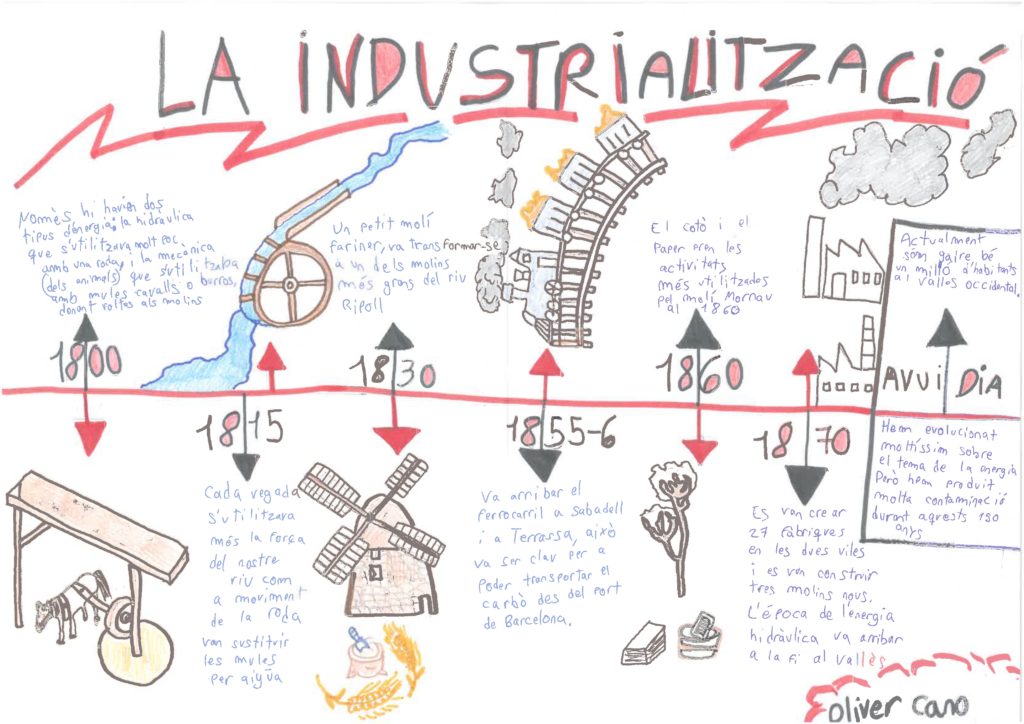 LA INDUSTRIALITZACIÓ
Només hi havien dos
tipus d'energia: la hidràulica
que s'utilitzava molt poc
amb una roda, i la mecànica
(dels animals) que s'utilitzaba
amb mules cavalls o burros,
donant voltes als molins
1800
1815
Cada vegada
s'utilitzava
més la força
del nostre
riu com
a moviment
de la roda
van sustitvir
les mules
per aigüa
Un petit molí
fariner, va transformar-se
a un dels molins
més grans del riu
Ripoll
1830
1855-6
Va arribar el
ferrocarril a Sabadell
i a Terrassa, això
va ser clau per a
poder transportar el
carbò des del port
de Barcelona.
El cotò i el
Paper eren les
activitats
més utilitzades
pel molí Mornau
al 1860
1860
1870
Es van crear
27 fàbriques
en les dues viles
i es van construir
tres molins nous.
L'època de l'energia
hidràulica va arribar
a la fi al vallès
Actualment
som gaire bé
un milló d'habitants
al vallès occidental.
AVUI DIA
Hem evolucionat
moltíssim sobre
el tema de la energia
Però hem produit
molta contaminació
durant aquests 190
anys
oliver cano